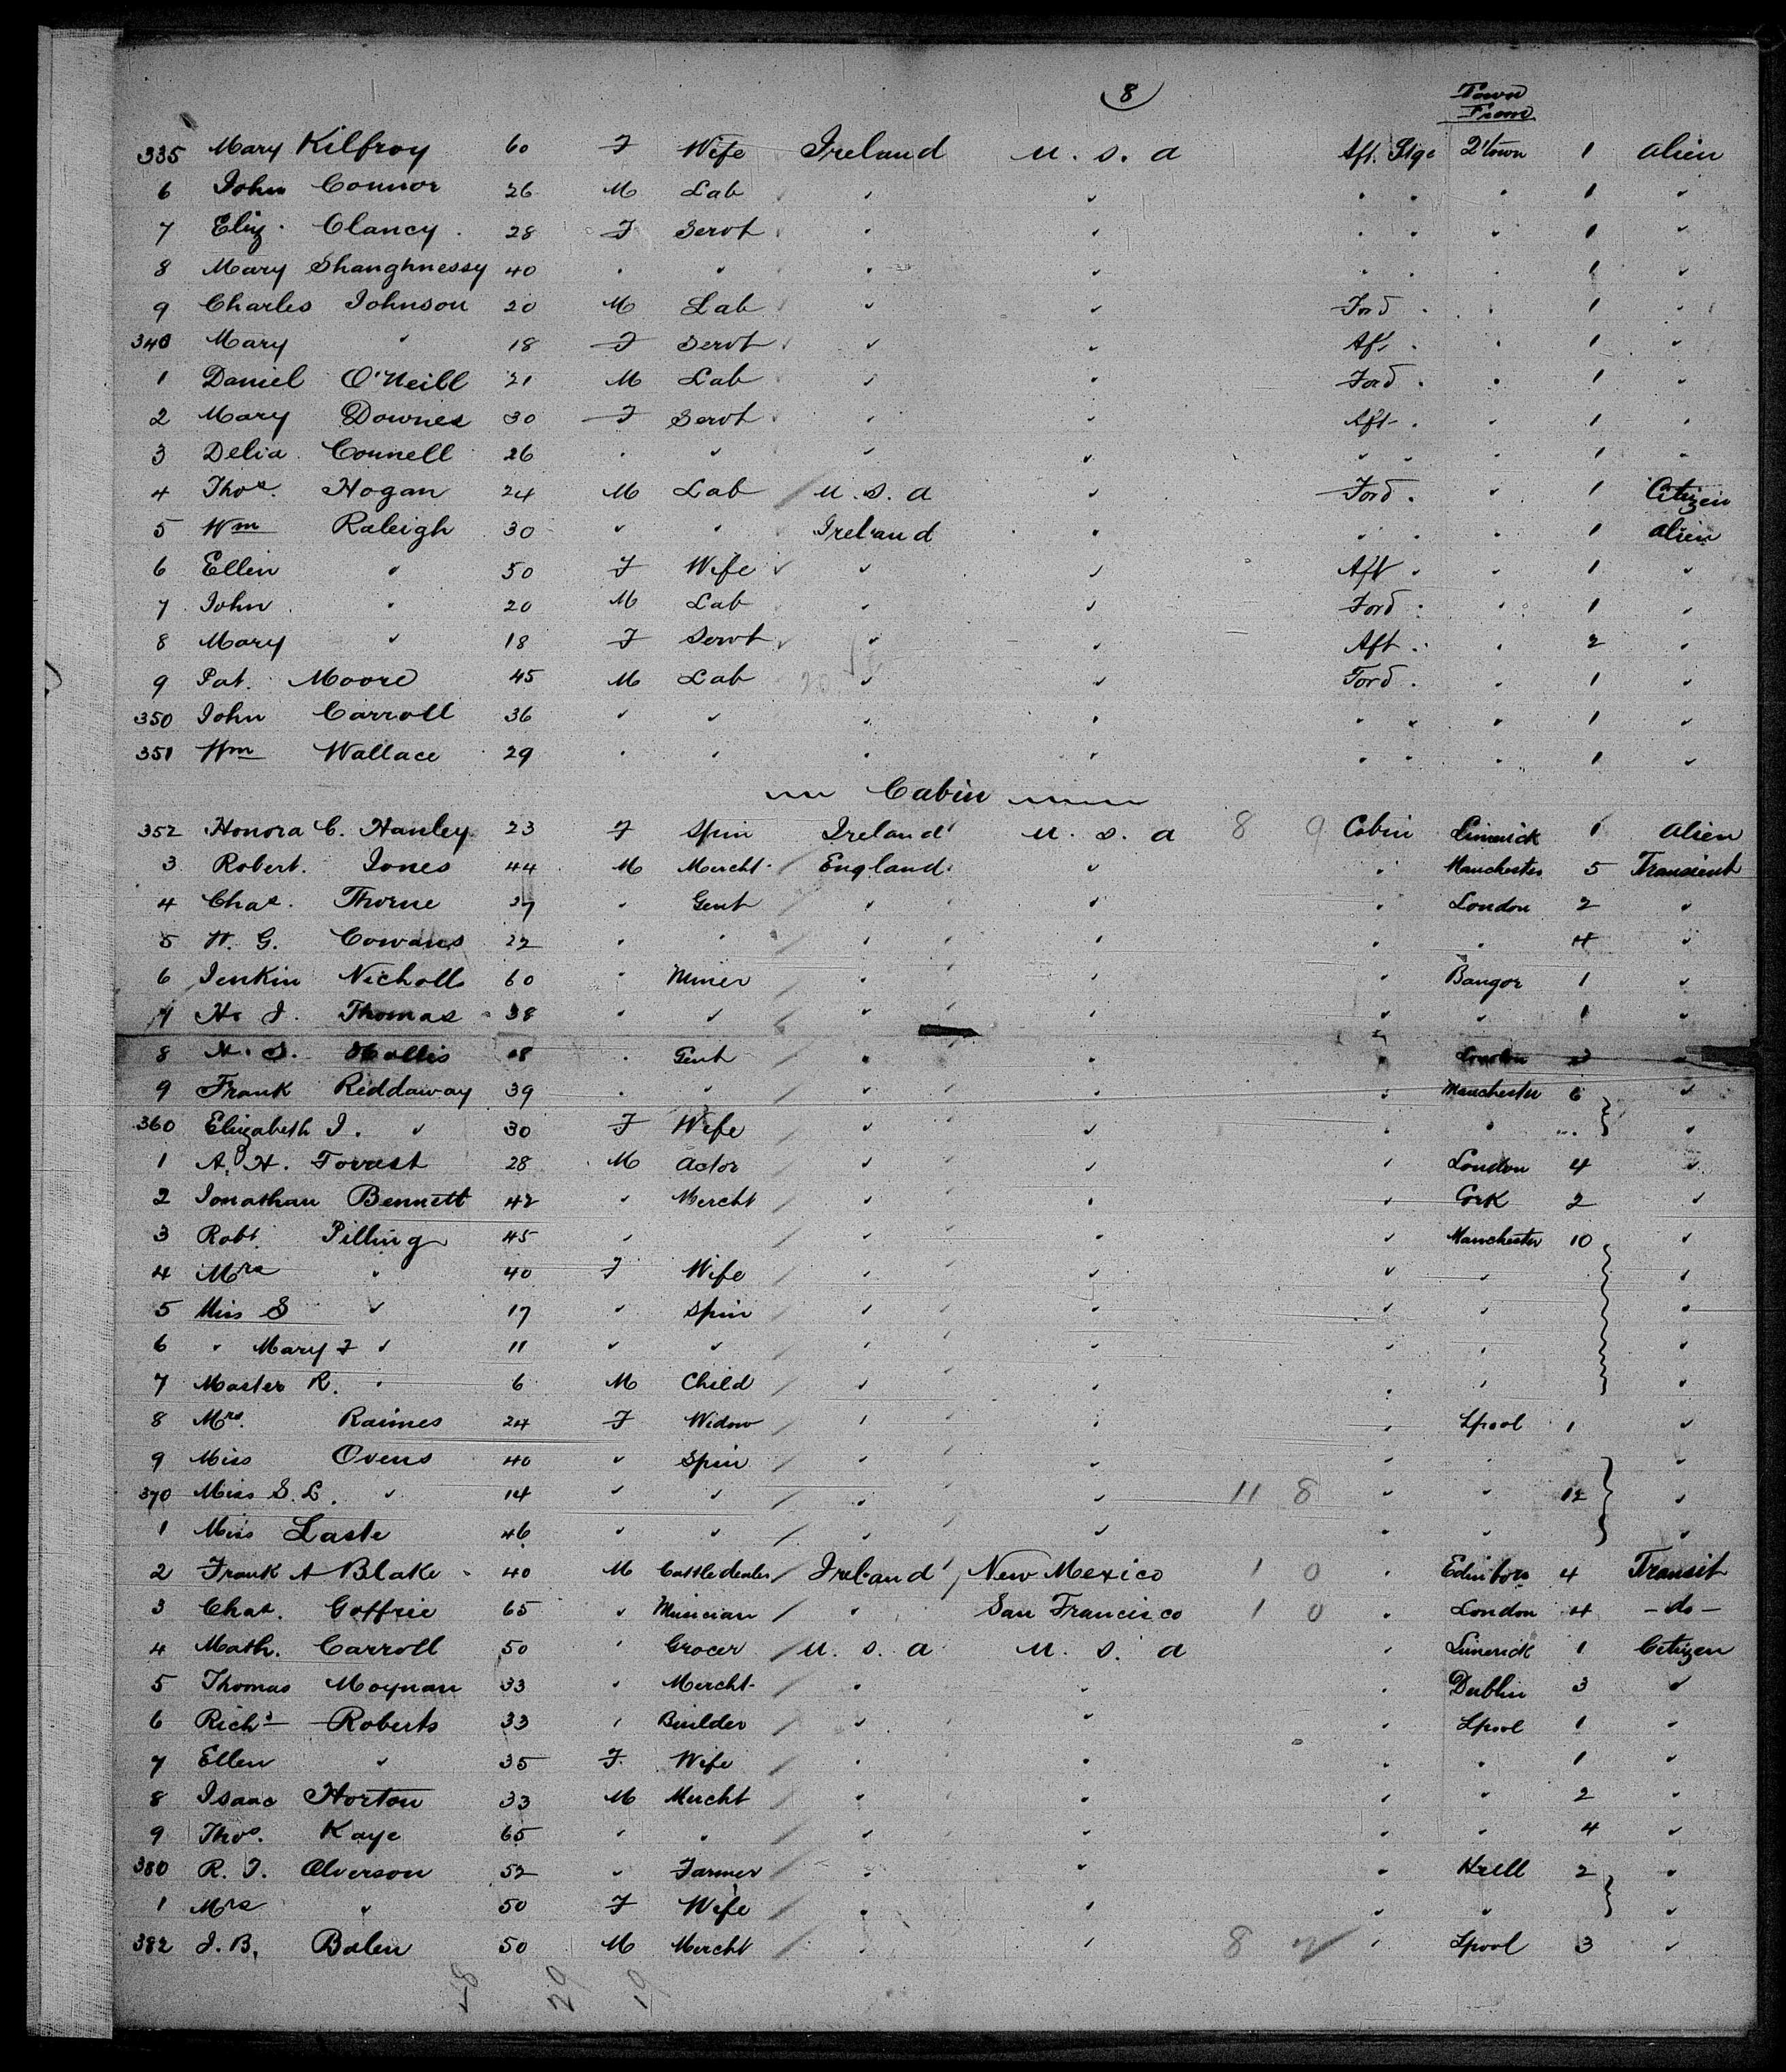 8
Town
From
335 Mary Kilfroy 60 F Wife Ireland U. S. A Aft. Stge Q'town 1 Alien
6 John Connor 26 M Lab " " " " " 1 "
7 Eliz. Clancy 28 F Servt " " " " " 1 "
8 Mary Shanghnessy 40 " " " " " " " 1 "
9 Charles Johnson 20 M Lab " " Ford " " 1 "
340 Mary " 18 F Servt " " Aft " " 1 "
1 Daniel O'Neill 21 M Lab " " Ford " " 1 "
2 Mary Downes 30 F Servt " " Aft " " 1 "
3 Delia Connell 26 " " " " " " " 1 "
4 Thos. Hogan 24 M Lab U. S. A " Ford " " 1 Citizen
5 Wm Raleigh 30 " " Ireland " " " " 1 Alien
6 Ellen " 50 F Wife " " Aft " " 1 "
7 John " 20 M Lab " " Ford " " 1 "
8 Mary " 18 F Servt " " Aft " " 2 "
9 Pat. Moore 45 M Lab " " Ford " " 1 "
350 John Carroll 36 " " " " " " " 1 "
351 Wm Wallace 29 " " " " " " " 1 "
Cabin
352 Honora C. Hanley 23 F Spin Ireland U. S. A 8 9 Cabin Limerick 1 Alien
3 Robert Jones 44 M Mercht England " " Manchester 5 Transient
4 Chas. Thorne 37 " Gent " " " London 2 "
5 W. G. Cowans 22 " " " " " " 4 "
6 Jenkin Nicholls 60 " Miner " " " Bangor 1 "
7 Thomas 38 " " " " " " 1 "
8 Hollis " Gent " " " London "
9 Frank Reddaway 39 " " " " " Manchester 6 "
360 Elizabeth J. " 30 F Wife " " " " "
1 A. H. Forrest 28 M Actor " " " London 4 "
2 Jonathan Bennett 42 " Mercht " " " Cork 2 "
3 Robt. Pilling 45 " " " " Manchester 10 "
4 Mrs " 40 F Wife " " " " "
5 Miss S " 17 " Spin " " " " "
6 " Mary F " 11 " " " " " " "
7 Master R. " 6 M Child " " " " "
8 Mrs. Raimes 24 F Widow " " " Lpool 1 "
9 Miss Ovens 40 " Spin " " " " "
370 Miss S. L. " 14 " " " " 11 8 " " 12 "
1 Miss Laste 46 " " " " " " "
2 Frank A Blake 40 M Cattle dealer Ireland New Mexico 1 0 " Edinboro 4 Transit
3 Chas. Goffrie 65 " Musician " San Francisco 1 0 " London 4 - do -
4 Math. Carroll 50 " Grocer U. S. A U. S. A " Limerick 1 Citizen
5 Thomas Moynan 33 " Mercht " " " Dublin 3 "
6 Richd Roberts 33 " Builder " " " Lpool 1 "
7 Ellen " 35 F. Wife " " " " 1 "
8 Isaac Horton 33 M Mercht " " " " 2 "
9 Thos. Kaye 65 " " " " " " 4 "
380 R. T. Alverson 52 " Farmer " " " Hull 2 "
1 Mrs " 50 F Wife " " " " "
382 J. B. Balen 50 M Mercht " " 8 " Lpool 3 "